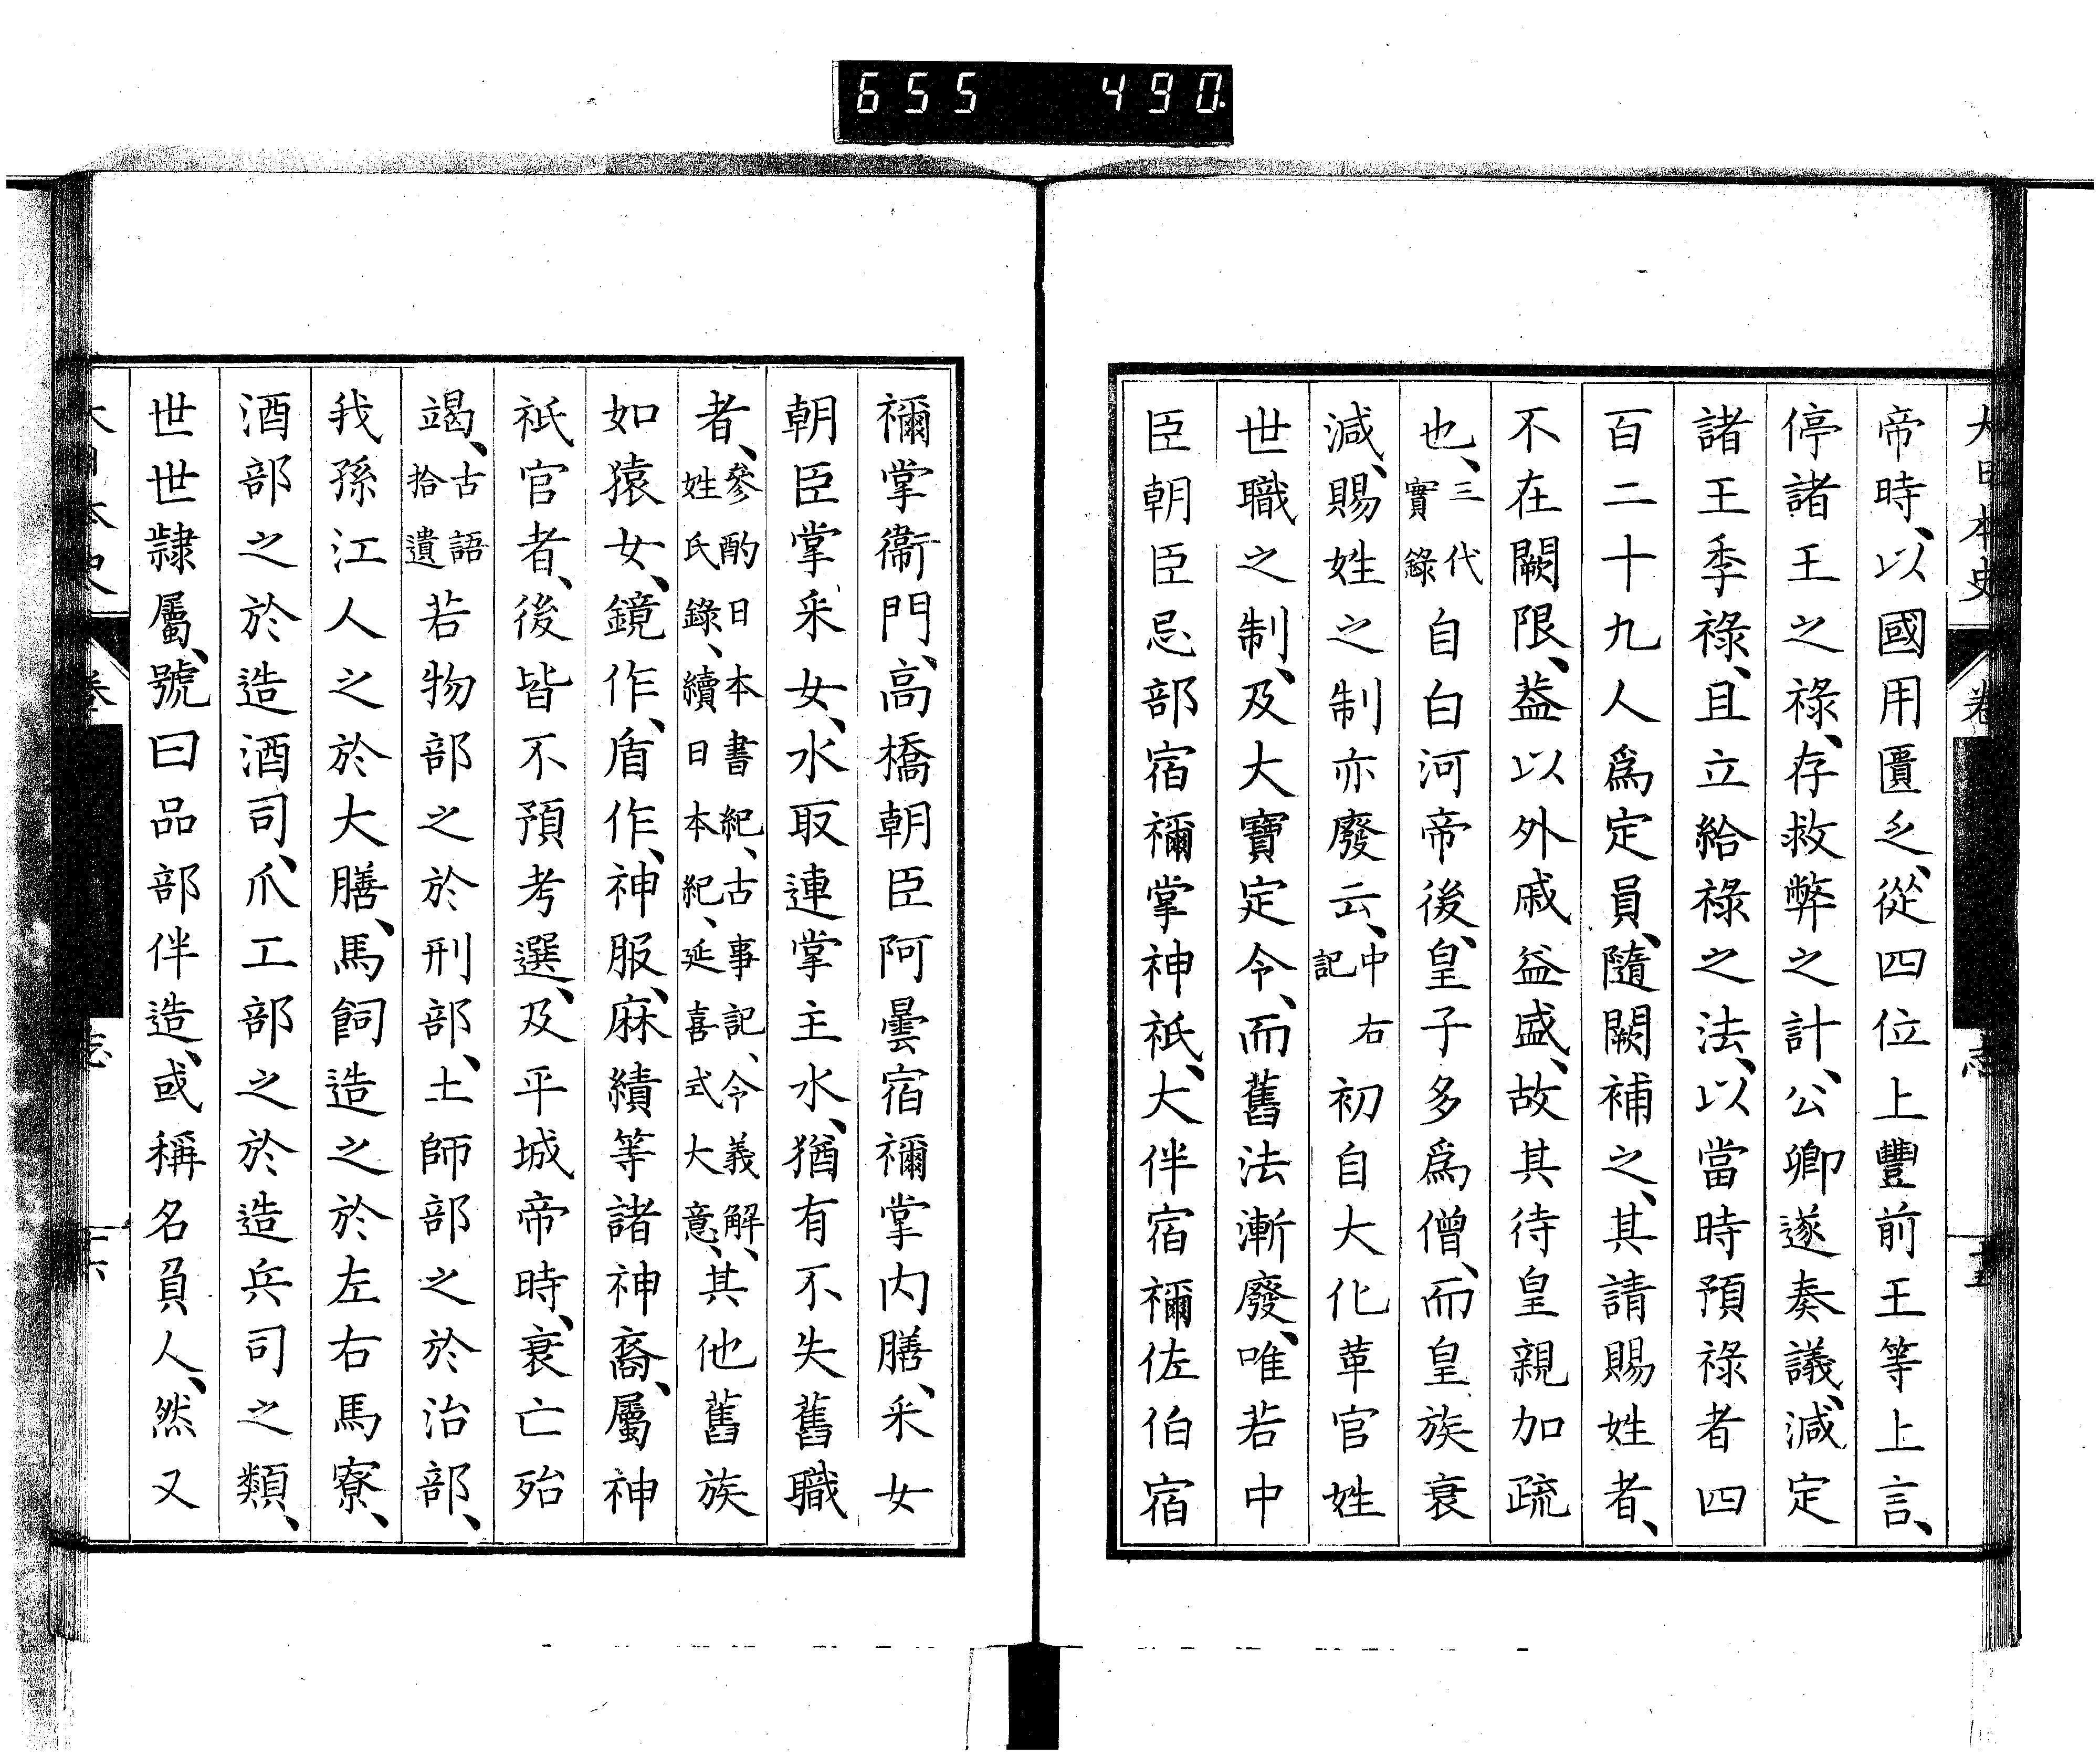 655 490.
大日本史 卷 志
帝時、以國用匱乏、從四位上豐前王等上言、
停諸王之祿、存救弊之計、公卿遂奏議、減定
諸王季祿、且立給祿之法、以當時預祿者四
百二十九人爲定員、隨闕補之、其請賜姓者、
不在闕限、葢以外戚益盛、故其待皇親加疏
也、三代實錄自白河帝後、皇子多爲僧、而皇族衰
減、賜姓之制亦廢云、中右記初自大化革官姓
世職之制、及大寶定令、而舊法漸廢、唯若中
臣朝臣忌部宿禰掌神祇、大伴宿禰佐伯宿
禰掌衞門、高橋朝臣阿曇宿禰掌內膳、采女
朝臣掌采女、水取連掌主水、猶有不失舊職
者、參酌日本書紀、古事記、令義解、姓氏錄、續日本紀、延喜式大意、其他舊族
如猿女、鏡作、盾作、神服、麻績等諸神裔、屬神
祇官者、後皆不預考選、及平城帝時、衰亡殆
竭、古語拾遺若物部之於刑部、土師部之於治部、
我孫江人之於大膳、馬飼造之於左右馬寮、
酒部之於造酒司、爪工部之於造兵司之類、
世世隸屬、號曰品部伴造、或稱名負人、然又